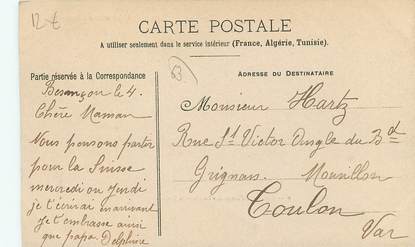 12 €
CARTE POSTALE
A utiliser seulement dans le service intérieur (France, Algérie, Tunisie).
Partie réservée à la Correspondance
Besançon le 4.
Chère Maman
Nous pensons partir
pour la Suisse
mercredi ou jeudi
je t'écrirai en arrivant
Je t'embrasse ainsi
que papa. Delphine
83
ADRESSE DU DESTINATAIRE
Monsieur Hartz
Rue St Victor Angle du Bd
Grignan. Mourillon
Toulon
Var